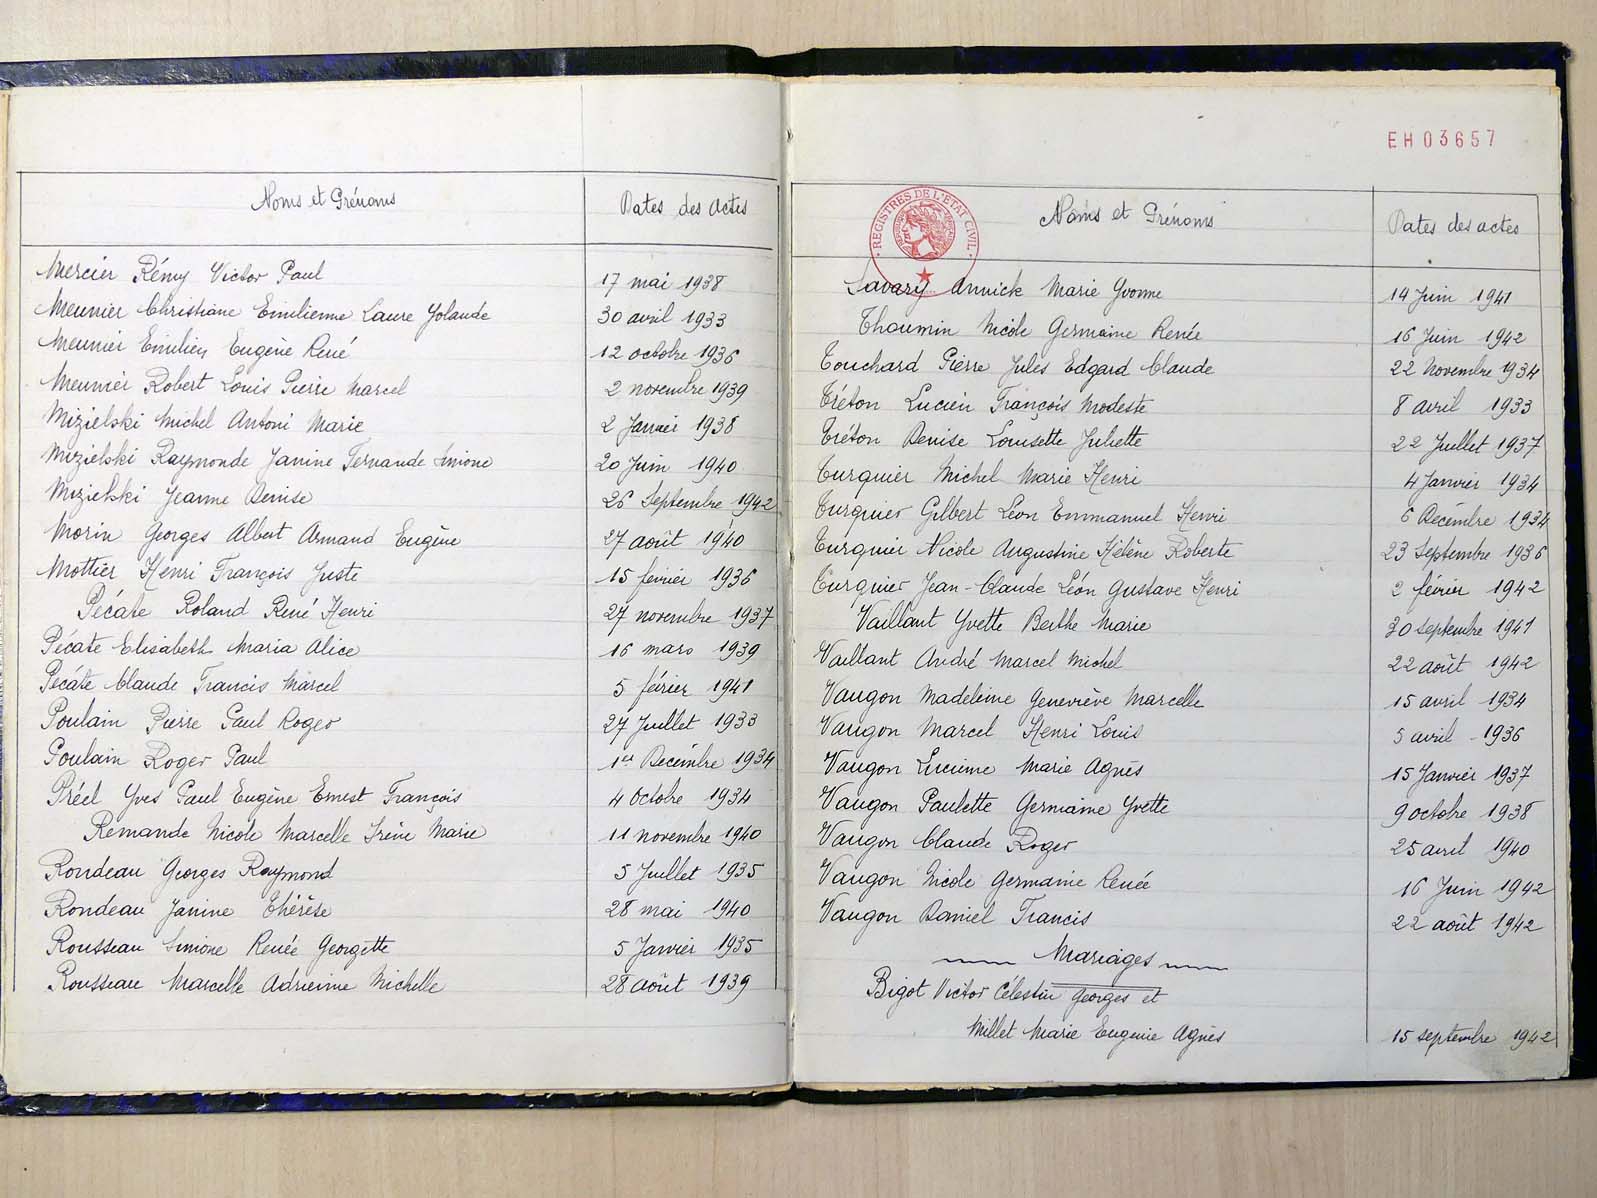 Noms et Prénoms Dates des actes
Mercier Rémy Victor Paul 17 mai 1938
Meunier Christiane Emilienne Laure Yolande 30 avril 1933
Meunier Emilien Eugène René 12 octobre 1936
Meunier Robert Louis Pierre Marcel 2 novembre 1939
Mizielski Michel Antoni Marie 2 Janvier 1938
Mizielski Raymonde Janine Fernande Simone 20 Juin 1940
Mizielski Jeanne Denise 26 Septembre 1942
Morin Georges Albert Armand Eugène 27 août 1940
Mottier Henri François Juste 15 février 1936
Pécate Roland René Henri 27 novembre 1937
Pécate Elisabeth Maria Alice 16 mars 1939
Pécate Claude Francis Marcel 5 février 1941
Poulain Pierre Paul Roger 27 Juillet 1933
Poulain Roger Paul 1er Décembre 1934
Préel Yves Paul Eugène Ernest François 4 Octobre 1934
Remande Nicole Marcelle Irène Marie 11 novembre 1940
Rondeau Georges Raymond 5 Juillet 1935
Rondeau Janine Thérèse 28 mai 1940
Rousseau Simone Renée Georgette 5 Janvier 1935
Rousseau Marcelle Adrienne Michelle 28 août 1939
EH03657
REGISTRES DE L'ETAT CIVIL
Noms et Prénoms Dates des actes
Savary Annick Marie Yvonne 14 Juin 1941
Thoumin Nicole Germaine Renée 16 Juin 1942
Touchard Pierre Jules Edgard Claude 22 Novembre 1934
Tréton Lucien François Modeste 8 avril 1933
Tréton Denise Louisette Juliette 22 Juillet 1937
Turquier Michel Marie Henri 4 Janvier 1934
Turquier Gilbert Léon Emmanuel Henri 6 Décembre 1934
Turquier Nicole Augustine Hélène Roberte 23 Septembre 1936
Turquier Jean-Claude Léon Gustave Henri 2 février 1942
Vaillant Yvette Berthe Marie 30 septembre 1941
Vaillant André Marcel Michel 22 août 1942
Vaugon Madeleine Geneviève Marcelle 15 avril 1934
Vaugon Marcel Henri Louis 5 avril 1936
Vaugon Lucienne Marie Agnès 15 Janvier 1937
Vaugon Paulette Germaine Yvette 9 octobre 1938
Vaugon Claude Roger 25 avril 1940
Vaugon Nicole Germaine Renée 16 Juin 1942
Vaugon Daniel Francis 22 août 1942
Mariages
Bigot Victor Célestin Georges et
Millet Marie Eugenie Agnès 15 septembre 1942